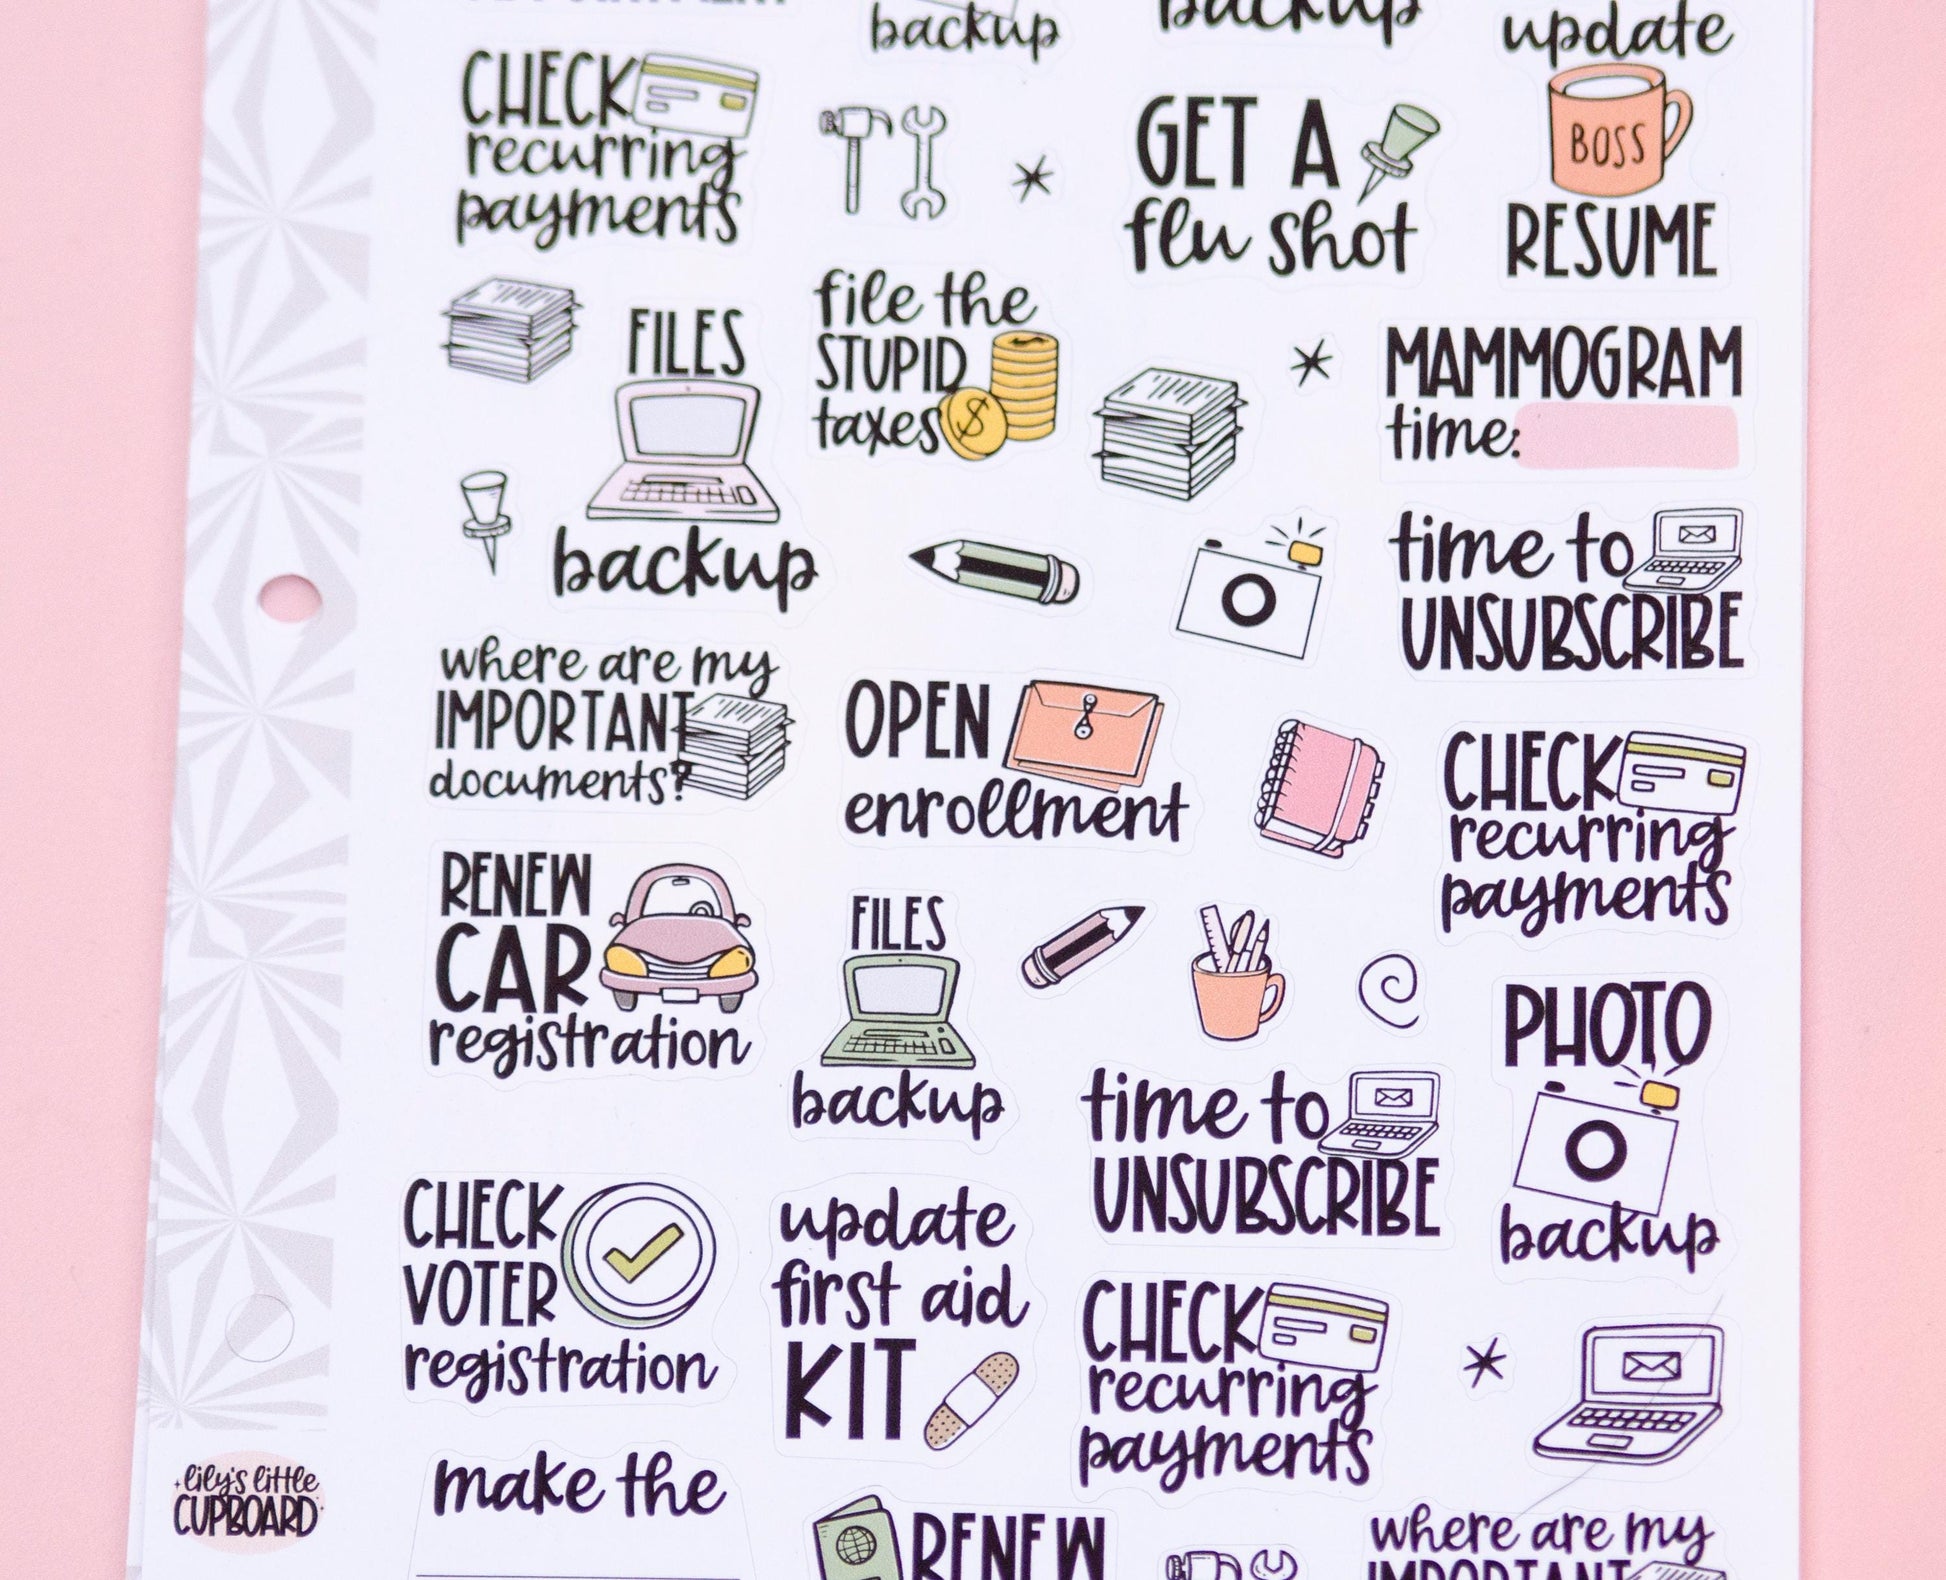 backup
backup
update
BOSS
RESUME
CHECK
recurring
payments
GET A
flu shot
FILES
backup
file the
STUPID
taxes
$
MAMMOGRAM
time:
time to
UNSUBSCRIBE
where are my
IMPORTANT
documents?
OPEN
enrollment
CHECK
recurring
payments
RENEW
CAR
registration
FILES
backup
PHOTO
backup
time to
UNSUBSCRIBE
CHECK
VOTER
registration
update
first aid
KIT
CHECK
recurring
payments
make the
RENEW
where are my
IMPORTANT
lily's little
CUPBOARD